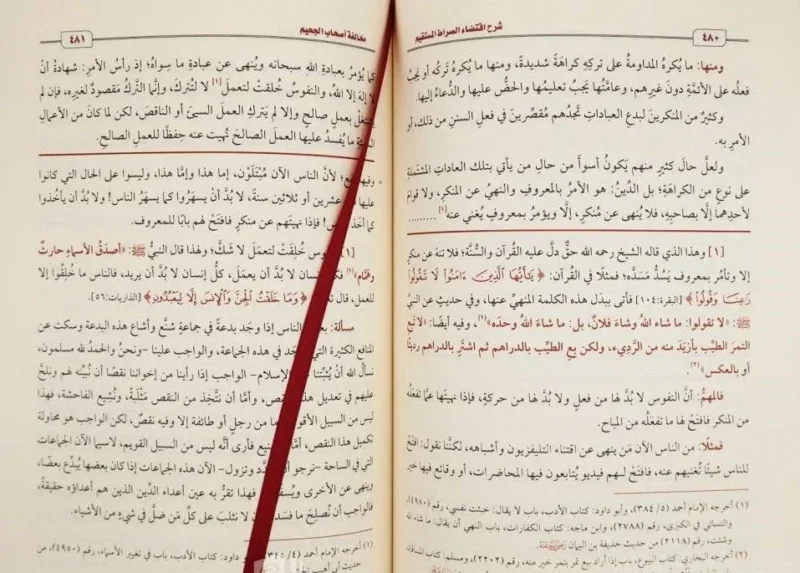 ٤٨٠
شرح اقتضاء الصراط المستقيم
ومنها: ما يُكرهُ المداومةُ على تركِه كراهَةً شديدةً، ومنها ما يُكرهُ تَركُه أو يجبُ
فعلُه على الأئمَّةِ دونَ غيرِهم، وعامَّتُها يجبُ تعليمُها والحضُّ عليها والدُّعاءُ إليها.
وكثيرٌ من المنكرينَ لبدَعِ العباداتِ تَجدُهم مُقصِّرينَ في فعلِ السننِ من ذلك، أو
الأمرِ به.
ولعلَّ حالَ كثيرٍ منهم يَكونُ أسوأَ من حالِ من يأتي بتلك العاداتِ المشتملةِ
على نوعٍ من الكراهَةِ؛ بل الدِّينُ: هو الأمرُ بالمعروفِ والنهيُ عن المنكرِ، ولا قِوامَ
لأحدِهما إلَّا بصاحبِه، فلا يُنهَى عن مُنكرٍ، إلَّا ويؤمرُ بمعروفٍ يُغني عنه[١].........
[١] وهذا الذي قاله الشيخ رحمه الله حقٌّ دلَّ عليه القُرآن والسُّنَّة؛ فلا تنهَ عن منكر
إلا وتأمر بمعروف يَسُدُّ مَسَدَّه؛ فمثلًا في القرآن: ﴿يَٰٓأَيُّهَا ٱلَّذِينَ ءَامَنُوا۟ لَا تَقُولُوا۟
رَٰعِنَا وَقُولُوا۟﴾ [البقرة:١٠٤] فأتى ببَدَل هذه الكلمة المنهيِّ عنها، وفي حديثٍ عن النبيِّ
ﷺ: «لا تقولوا: ما شاء اللهُ وشاءَ فلانٌ، بل: ما شاءَ اللهُ وحدَه»(١)، وفيه أيضًا: «لا تَبِعِ
التمرَ الطيِّبَ بأزيَدَ منه من الرَّديءِ، ولكن بِعِ الطيِّبَ بالدراهمِ ثم اشترِ بالدراهمِ رديئًا
أو بالعكسِ»(٢).
فالمهمُّ: أنَّ النفوس لا بُدَّ لها من فعلٍ ولا بُدَّ لها من حركةٍ، فإذا نهيتَها عمَّا تَفعَلُه
من المنكر فافتَحْ لها ما تَفعَلُه من المباح.
فمثلًا: من الناس الآن مَن ينهى عن اقتناء التليفزيون وأشباهه، لكنَّنا نقول: افتح
للناس شيئًا تُغنيهم عنه، فافتَحْ لهم فيديو يُتابعون فيها المحاضرات، أو وقائع فيها خير
(١) أخرجه الإمام أحمد (٥/ ٣٨٤)، وأبو داود: كتاب الأدب، باب لا يقال: خبثت نفسي، رقم (٤٩٨٠)،
والنسائي في الكبرى، رقم
وشئت، رقم (٢١١٨) من حديث حذيفة بن اليمان
(٢) أخرجه البخاري: كتاب البيوع، باب إذا أراد بيع تمر بتمر خير منه، رقم (٢٢٠٢)، ومسلم: كتاب المساقاة،
مخالفة أصحاب الجحيم
٤٨١
كما يُؤمرُ بعبادةِ اللهِ سبحانه ويُنهى عن عبادةِ ما سِواهُ؛ إذ رأسُ الأمرِ: شهادةُ أنْ
لا إلهَ إلا اللهُ، والنفوسُ خُلقتْ لتعملَ[١] لا لتُتركَ، وإنَّما التَّركُ مَقصودٌ لغيرِه، فإن لم
بعملٍ صالحٍ وإلا لم يَترُكِ العملَ السيئَ أو الناقصَ، لكن لما كانَ من الأعمالِ
ما يُفسدُ عليها العملَ الصالحَ نُهيتْ عنه حِفظًا للعملِ الصالحِ.
لأنَّ الناسَ الآن مُبتَلَوْن، إما هذا وإمَّا هذا، وليسوا على الحال التي كانوا
عليها عشرين أو ثلاثين سنةً، لا بُدَّ أن يَسهَرُوا كما يَسهَرُ الناس! ولا بُدَّ أن يأخُذوا
كما أخَذ فإذا نهيتَهم عن منكرٍ فافتَحْ لهم بابًا للمعروف.
[١] خُلِقتْ لتعملَ لا شَكَّ؛ ولهذا قال النبيُّ ﷺ: «أَصدَقُ الأسماءِ حارثٌ
وهمَّام»(١) لا بُدَّ أن يعمَلَ، وكلُّ إنسانٍ لا بُدَّ أن يريد، فالناس ما خُلِقوا إلا
للعمل، قال ﴿وَمَا خَلَقْتُ ٱلْجِنَّ وَٱلْإِنسَ إِلَّا لِيَعْبُدُونِ﴾ [الذاريات:٥٦].
مسألة: الناس إذا وجَد بدعةً في جماعةٍ شنَّع وأشاع هذه البدعة وسكت عن
المنافع الكثيرة التي في هذه الجماعة، والواجب علينا -ونحنُ والحمدُ للهِ مسلمون،
نسألُ اللهَ أن يُثبِّتَنا الإسلام- الواجب إذا رأينا من إخواننا نقصًا أن نُنبِّه لهم ونُلِحَّ
عليهم في تعديل هذا وأمَّا أن نتَّخِذَ من النقص مَثْلَبةً، ونُشيعَ الفاحشة، فهذا
ليس من السبيل ما من رجلٍ أو طائفة إلا وفيه نقصٌ، لكن الواجب هو محاولة
تكميل هذا النقص، فأرى أنَّه ليس من السبيل القويم، لاسيما الآن الجماعات
التي في الساحة -نرجو وتزول- الآن هذه الجماعات إذا كان بعضها يُبدِّع بعضًا،
وينهى عن الأخرى فهذا تقرُّ به عينُ أعداء الدِّين الذين هم أعداؤه حقيقةً،
فالواجب أن نُصلِحَ ما فسَد لا نَثلِبَ على كلِّ مَن ضلَّ في شيءٍ من الأشياء.
(١) أخرجه الإمام أحمد (٤/ ٣٤٥)، داود: كتاب الأدب، باب في تغيير الأسماء، رقم (٤٩٥٠)، من